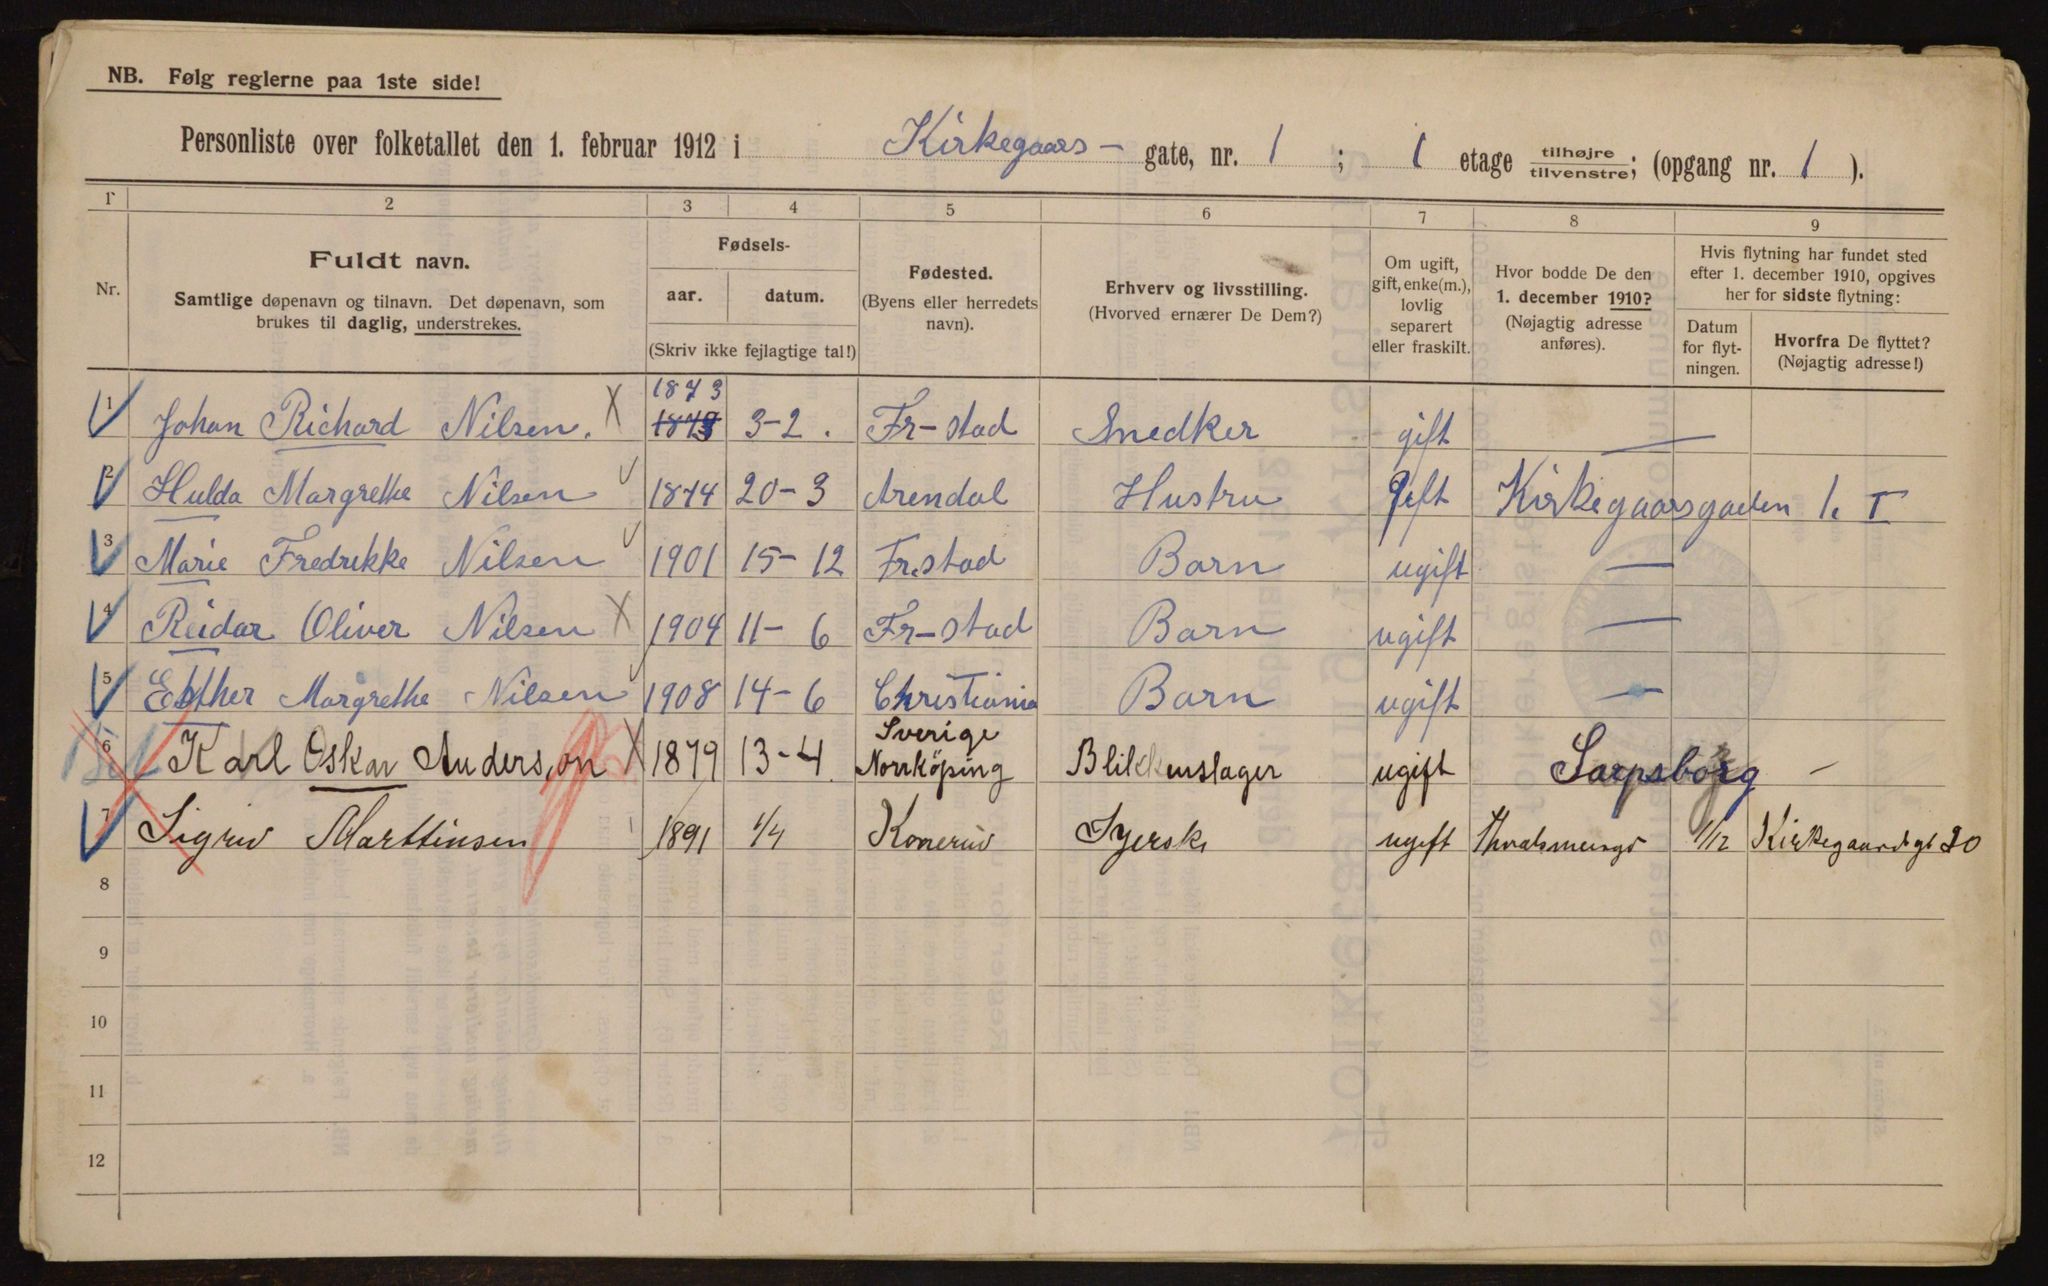 NB. Følg reglerne paa 1ste side!
Personliste over folketallet den 1. februar 1912 i Kirkegaars- gate, nr. 1 ; 1 etage tilhøjre / tilvenstre; (opgang nr. 1 ).
1 2 3 4 5 6 7 8 9
Nr.
Fuldt navn.
Samtlige døpenavn og tilnavn. Det døpenavn, som
brukes til daglig, understrekes.
Fødsels-
aar. datum.
(Skriv ikke fejlagtige tal!)
Fødested.
(Byens eller herredets
navn).
Erhverv og livsstilling.
(Hvorved ernærer De Dem?)
Om ugift,
gift, enke(m.),
lovlig
separert
eller fraskilt.
Hvor bodde De den
1. december 1910?
(Nøjagtig adresse
anføres).
Hvis flytning har fundet sted
efter 1. december 1910, opgives
her for sidste flytning:
Datum
for flyt-
ningen.
Hvorfra De flyttet?
(Nøjagtig adresse!)
1873
1 Johan Richard Nilsen. 3-2. Fr-stad Snedker gift —
2 Hulda Margrethe Nilsen 1874 20-3 Arendal Hustru gift Kirkegaarsgaden 1. I
3 Marie Fredrikke Nilsen 1901 15-12 Fr.stad Barn ugift —
4 Reidar Oliver Nilsen 1904 11-6 Fr-stad Barn ugift —
5 Esther Margrethe Nilsen 1908 14-6 Christiania Barn ugift —
Sverige
6 Karl Oskar Anderson 1879 13-4 Norrköping Blikkenslager ugift Sarpsborg —
7 Sigrid Marttinsen 1891 1/4 ugift 1/12 Kirkegaardsgt 20
8
9
10
11
12